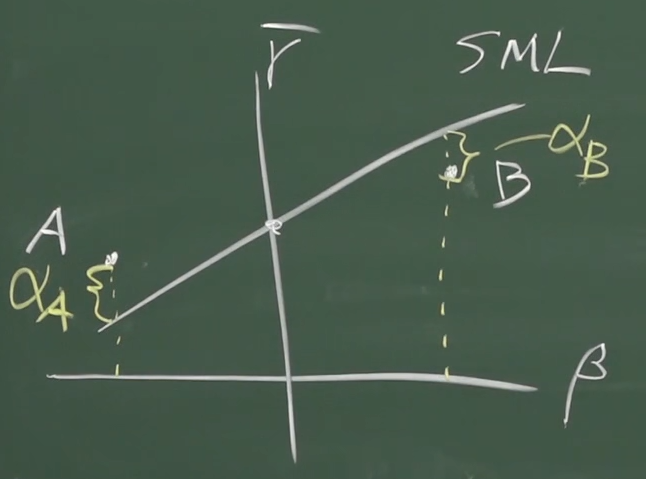 r̄
SML
α_B
B
A
α_A
β